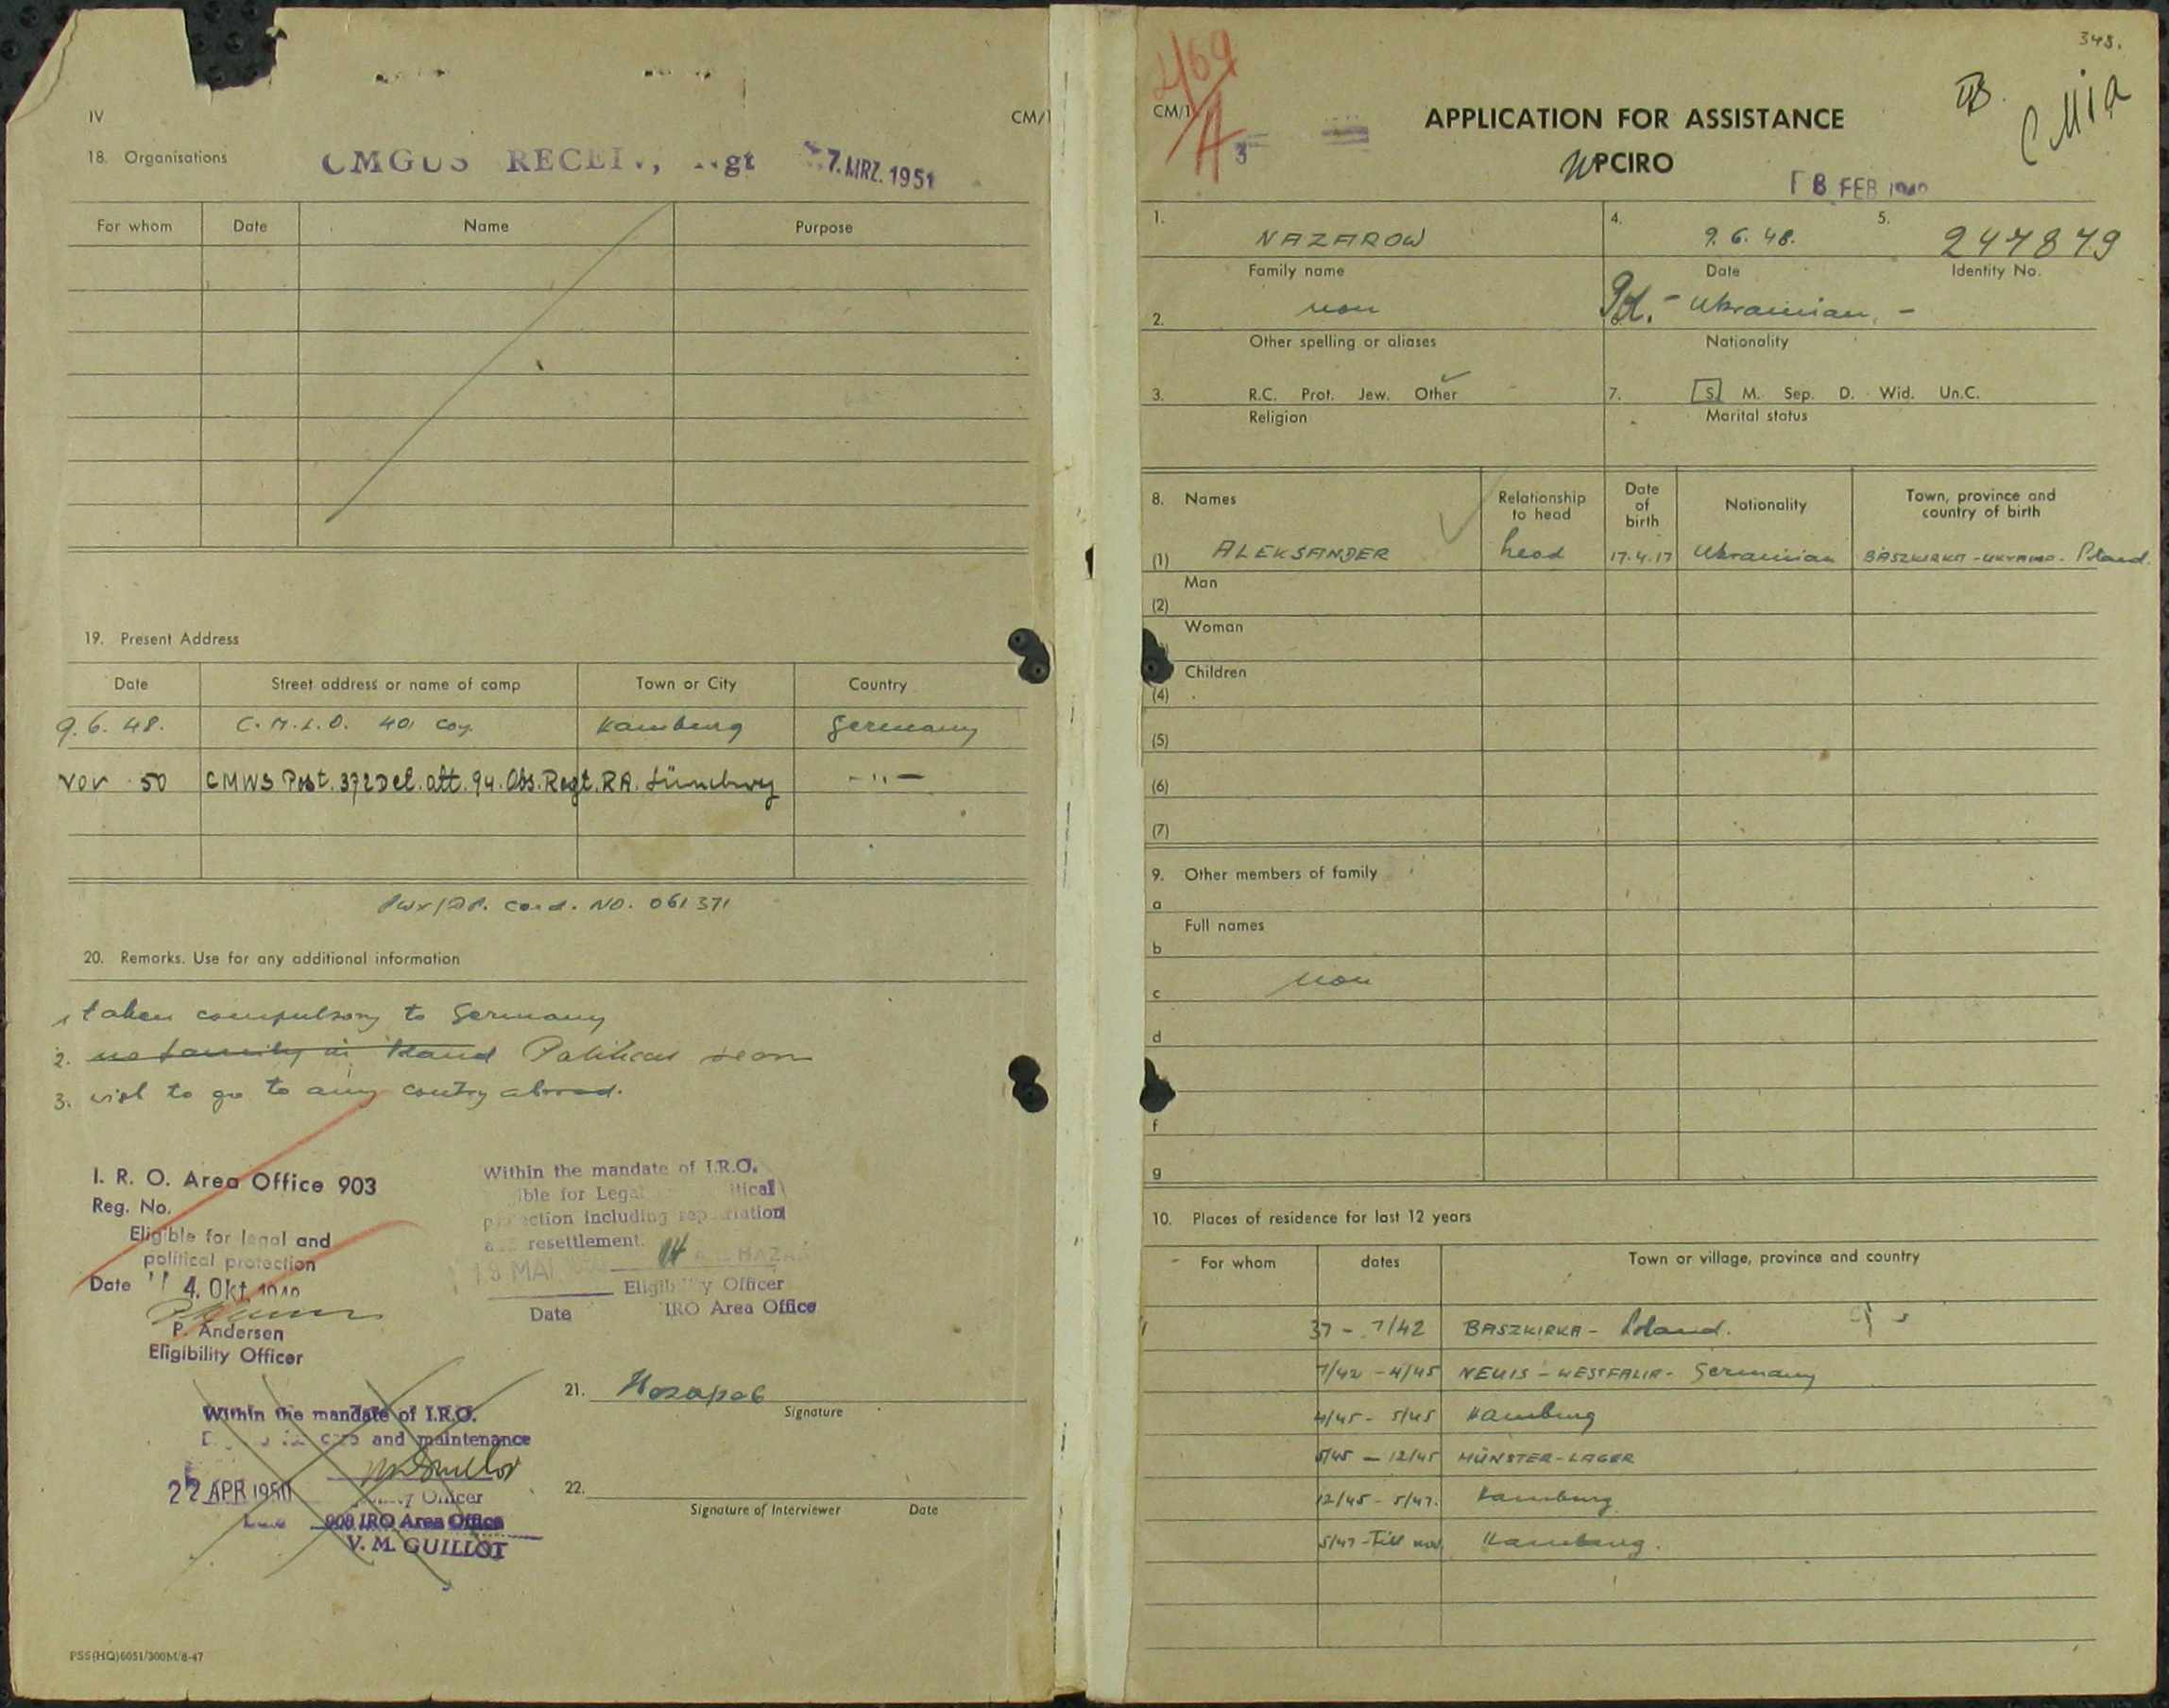 IV
CM/1
18. Organisations
7. MRZ. 1951
For whom Date Name Purpose
19. Present Address
Date Street address or name of camp Town or City Country
9.6.48. C.M.L.O. 401 coy. Hamburg Germany
Nov 50 CMWS Post. 372 Det. att. 94. Obs. Regt. RA. Lüneburg -"-
PWX/DP. Card. NO. 061371
20. Remarks. Use for any additional information
1 taken compulsory to Germany
2. no family in Political
3. wish to go to any contry abroad.
I. R. O. Area Office 903
Reg. No.
Eligible for legal and
political protection
Date 4. Okt.
P. Andersen
Eligibility Officer
Within the mandate of I.R.O.
ible for Legal itical
protection including repatriation
resettlement.
Eligibility Officer
Date IRO Area Office
Within the mandate of I.R.O.
care and maintenance
22 APR 1950
Officer
IRO Area Office
V. M. GUILLOT
21. Назаров
Signature
22.
Signature of Interviewer Date
PSS(HQ)6051/300M/8-47
348.
CM/1
A
3
APPLICATION FOR ASSISTANCE
PCIRO
FEB
1. NAZAROW 4. 9.6.48. 5. 247879
Family name Date Identity No.
2. non Pol. - Ukrainian. -
Other spelling or aliases Nationality
3. R.C. Prot. Jew. Other ✓ 7. S. M. Sep. D. Wid. Un.C.
Religion Marital status
8. Names Relationship to head Date of birth Nationality Town, province and country of birth
(1) ALEKSANDER head 17.4.17 Ukrainian BASZKIRKA - UKRAINE - Poland.
Man
(2)
Woman
Children
(4)
(5)
(6)
(7)
9. Other members of family
a
Full names
b
non
c
d
f
g
10. Places of residence for last 12 years
For whom dates Town or village, province and country
37 - 7/42 BASZKIRKA - Poland.
7/42 - 4/45 NEUIS - WESTFALIA - Germany
4/45 - 5/45 Hamburg
5/45 - 12/45 MÜNSTER - LAGER
12/45 - 5/47. Hamburg
5/47 - Till now. Hamburg.